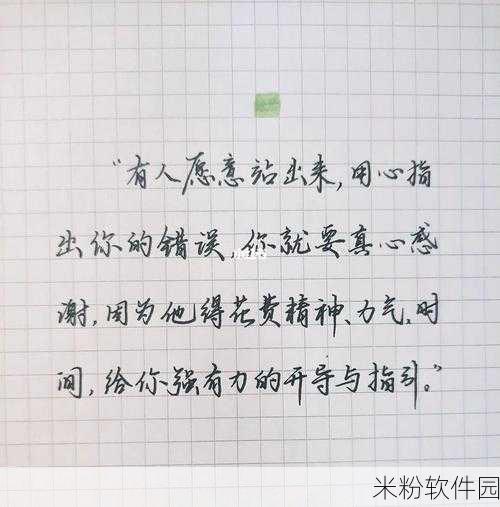 “有人愿意站出来,用心指
出你的错误,你就要真心感
谢,因为他得花费精神、力气、时
间,给你强有力的开导与指引。”
米粉软件园